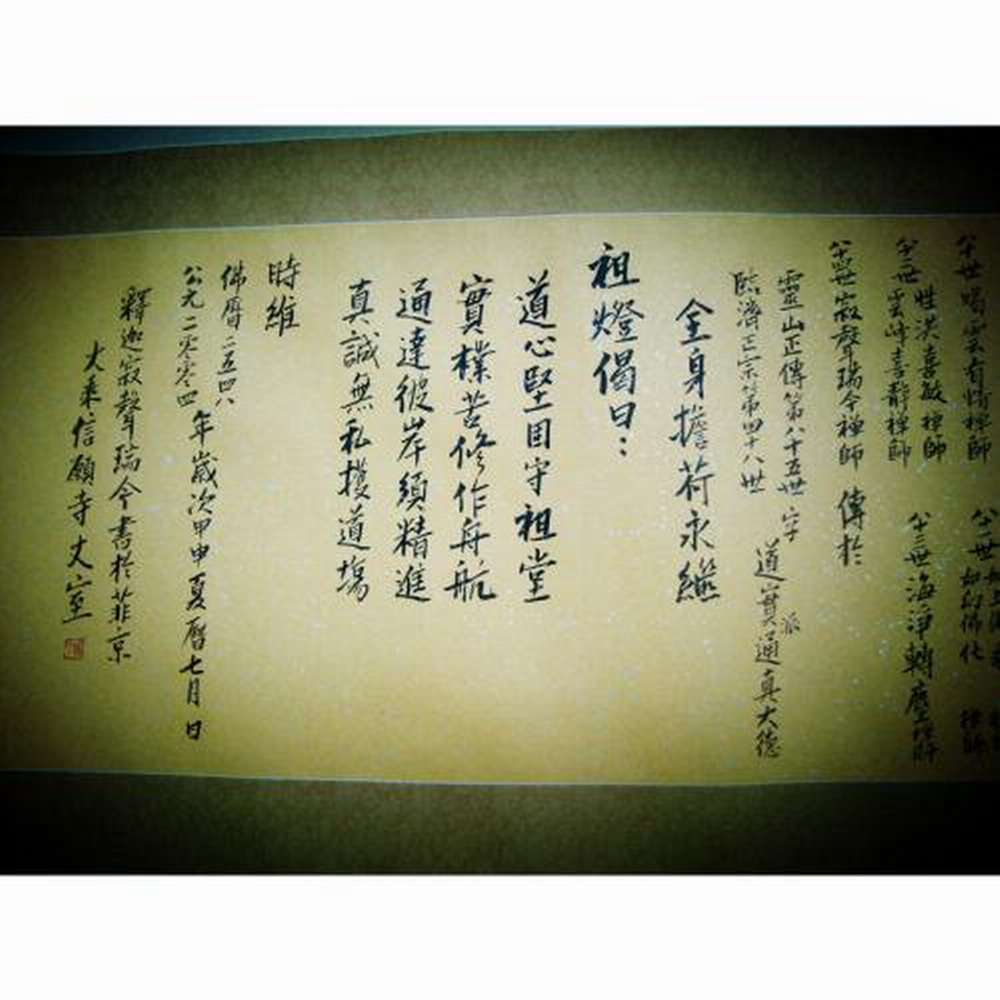 八十世 場雲有情禪師
八十一世 如幻佛化 禪師
八十二世 性洪喜敏禪師
雲峰喜靜禪師
八十三世 海淨轉塵禪師
八十四世 寂聲瑞今禪師 傳於
靈山正傳第八十五世 字 派
臨濟正宗第四十八世
道實通真大德
全身擔荷永繼
祖燈偈曰：
道心堅固守祖堂
實樸苦修作舟航
通達彼岸須精進
真誠無私獲道場
時維
佛曆二五四八
公元二零零四 年歲次甲申夏曆七月 日
釋迦寂聲瑞今書於菲京
大乘信願寺丈室